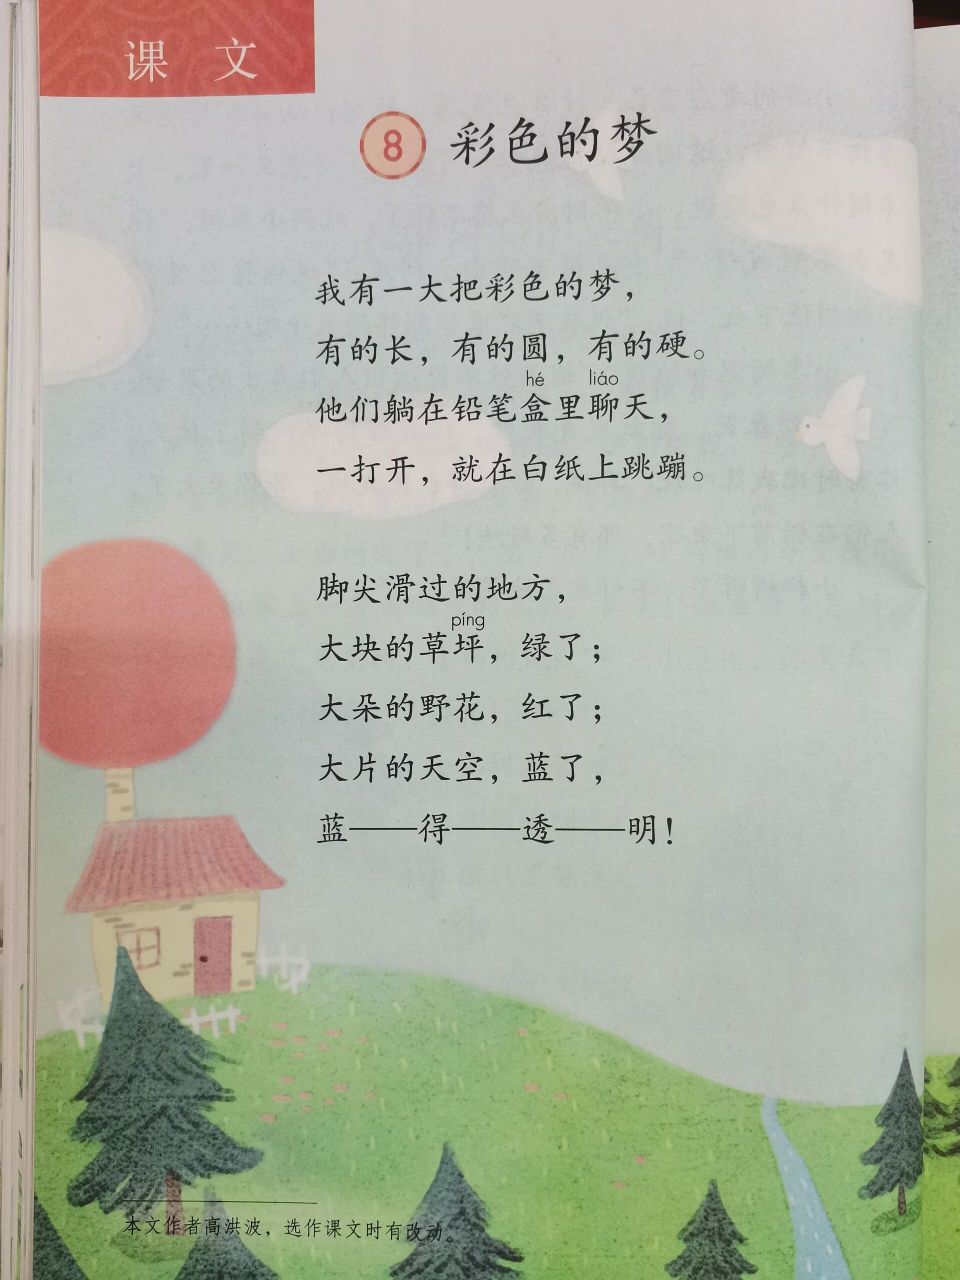 课 文
8 彩色的梦
我有一大把彩色的梦，
有的长，有的圆，有的硬。
hé liáo
他们躺在铅笔盒里聊天，
一打开，就在白纸上跳蹦。
脚尖滑过的地方，
píng
大块的草坪，绿了；
大朵的野花，红了；
大片的天空，蓝了，
蓝——得——透——明！
本文作者高洪波，选作课文时有改动。